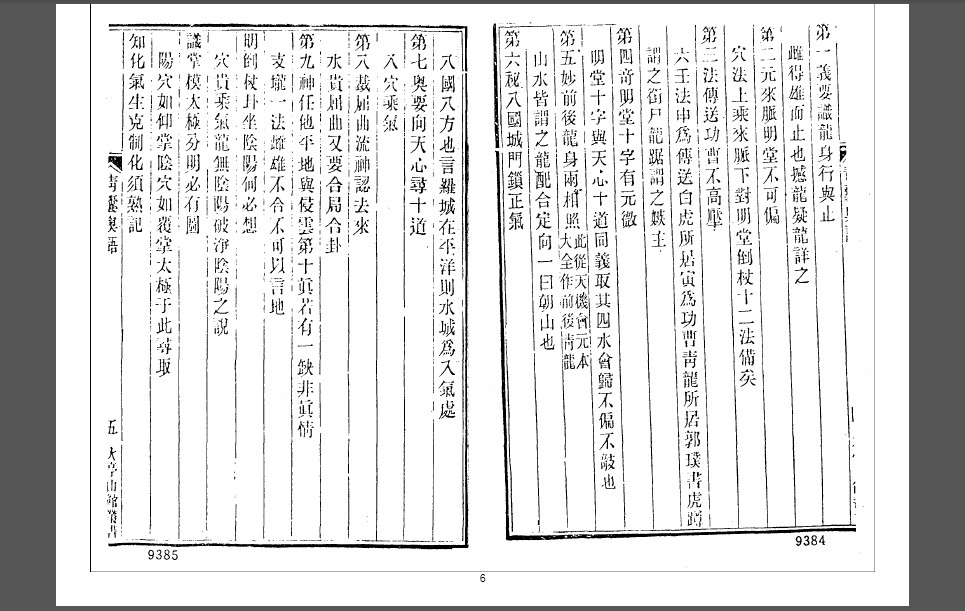 第一義要識龍身行與止
雌得雄而止也撼龍疑龍詳之
第二元來脈明堂不可偏
穴法上乘來脈下對明堂倒杖十二法備矣
第三法傳送功曹不高壓
六壬法申為傳送白虎所居寅為功曹靑龍所居郭璞書虎蹲
謂之銜尸龍踞謂之嫉主
第四奇明堂十字有元微
明堂十字與天心十道同義取其四水會歸不偏不敧也
第五妙前後龍身兩相照此從天機會元本
大全作前後靑龍
山水皆謂之龍配合定向一曰朝山也
第六秘八國城門鎖正氣
9384
八國八方也言羅城在平洋則水城爲入氣處
第七奥要向天心尋十道
穴乘氣
第八裁屈曲流神認去來
水貴屈曲又要合局合卦
第九神任他平地與侵雲第十眞若有一缺非眞情
支壠一法雌雄不合不可以言地
明倒杖卦坐陰陽何必想
穴貴乘氣龍無陰陽破淨陰陽之說
識掌模太極分明必有圖
陽穴如仰掌陰穴如覆掌太極于此尋取
知化氣生克制化須熟記
靑囊奥語
五
9385
6